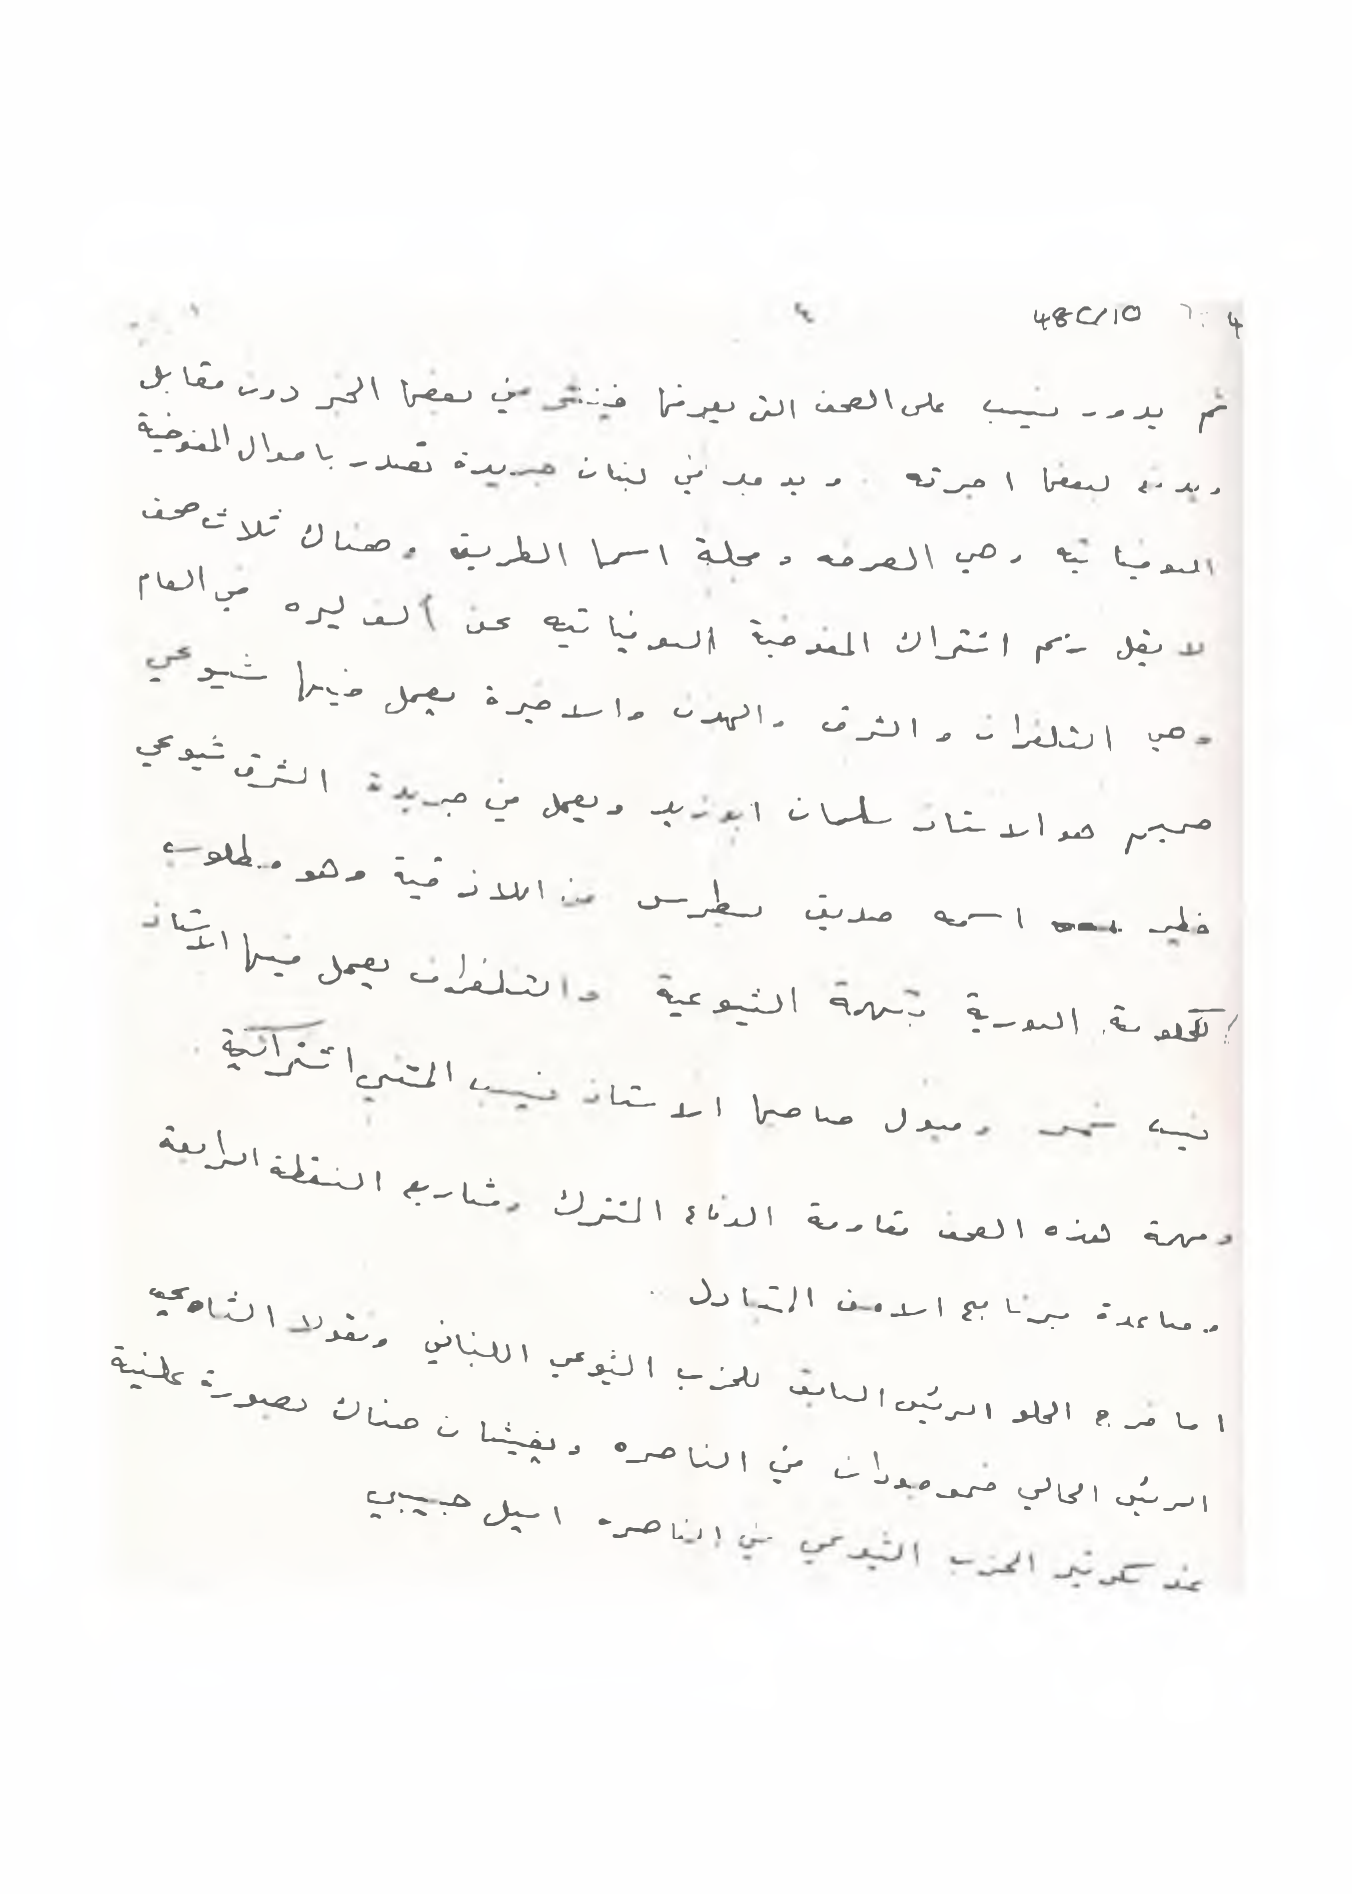 48C/10 4
٤
ثم يدور نسيب على الصحف التي يعرفها فينشر في بعضها الخبر دون مقابل
ويدفع لبعضها اجرته . ويوجد في لبنان جريدة تصدر باموال المفوضية
السوفياتيه وهي الصرخه ومجلة اسمها الطريق وهناك ثلاث صحف
لا يقل رسم اشتراك المفوضية السوفياتيه عن الف ليره في العام
وهي التلغراف والشرق والهدف والاخيرة يعمل فيها شيوعي
صميم هو الاستاذ سلمان ابو زيد ويعمل في جريدة الشرق شيوعي
خطير اسمه صديق بطرس من اللاذقية وهو مطلوب
للحكومة السورية بتهمة الشيوعية والتلغراف يعمل فيها الاستاذ
نسيب نمر وميول صاحبها الاستاذ نسيب المتني اشتراكية .
ومهمة هذه الصحف مقاومة الدفاع المشترك ومشاريع النقطة الرابعة
ومساعدة برنامج الامن المتبادل .
اما فرج الحلو الرئيس السابق للحزب الشيوعي اللبناني ونقولا الشاوي
الرئيس الحالي فموجودان في الناصره ويعيشان هناك بصورة علنية
عند سكرتير الحزب الشيوعي في الناصره اميل حبيبي